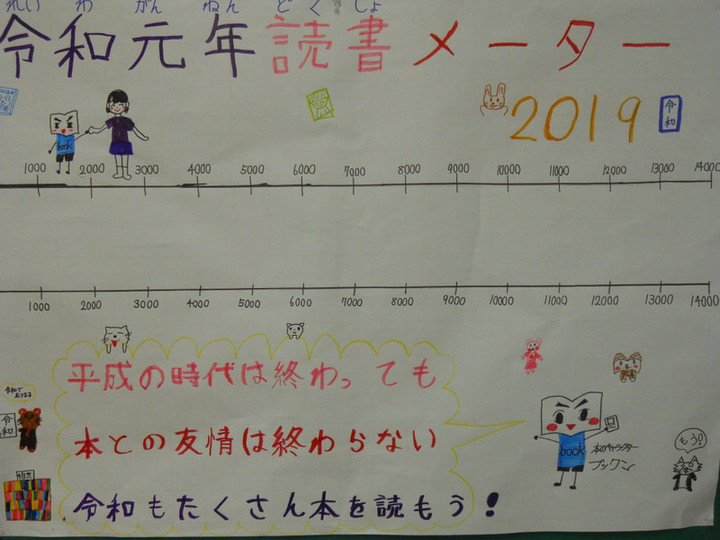 れいわがんねんどくしょ
令和元年読書メーター
2019
令和
book
1000 2000 3000 4000 5000 6000 7000 8000 9000 10000 11000 12000 13000 14000
1000 2000 3000 4000 5000 6000 7000 8000 9000 10000 11000 12000 13000 14000
平成の時代は終わっても
本との友情は終わらない
令和もたくさん本を読もう!
令和
book
本のキャラクター
ブックン
もう!